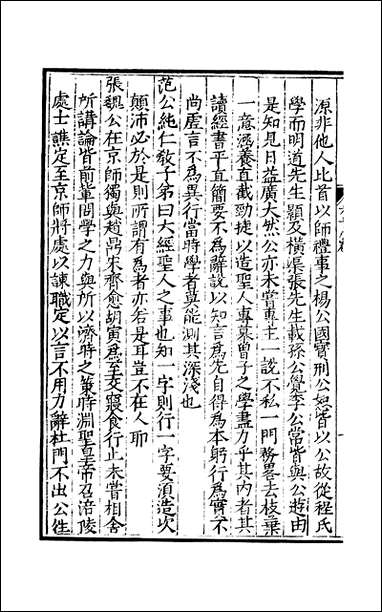 源非他人比首以師禮事之楊公國寶邢公恕皆以公故從程氏
學而明道先生顥及橫渠張先生載孫公覺李公常皆與公遊由
是知見日益廣大然公亦未嘗專主一說不私一門務畧去枝葉
一意涵養直截勁捷以造聖人專慕曾子之學盡力乎其內者其
讀經書平直簡要不為辭說以知言為先自得為本躬行為實不
尚虛言不為異行當時學者莫能測其深淺也
范公純仁敎子弟曰六經聖人之事也知一字則行一字要須造次
顛沛必於是則所謂有為者亦若是耳豈不在人耶
張魏公在京師獨與趙鼎宋齊愈胡寅為至交寢食行止未嘗相舍
所講論皆前輩問學之力與所以濟時之策時淵聖皇帝召涪陵
處士譙定至京師將處以諫職定以言不用力辭杜門不出公往